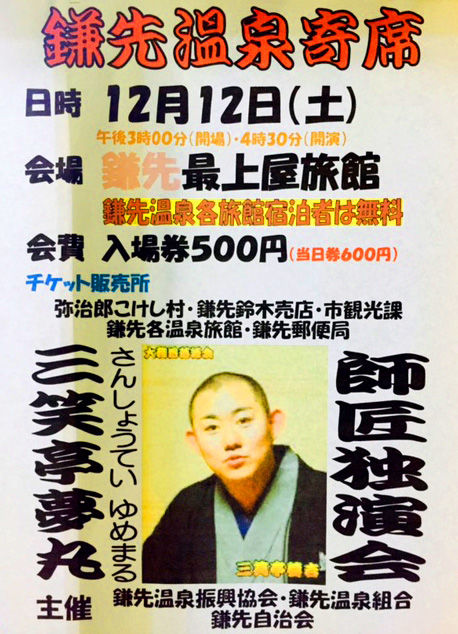 鎌先温泉寄席
日時 12月12日(土)
午後3時00分(開場)・4時30分(開演)
会場 鎌先最上屋旅館
鎌先温泉各旅館宿泊者は無料
会費 入場券500円(当日券600円)
チケット販売所
弥治郎こけし村・鎌先鈴木売店・市観光課
鎌先各温泉旅館・鎌先郵便局
師匠独演会
さんしょうてい ゆめまる
三笑亭夢丸
主催 鎌先温泉振興協会・鎌先温泉組合
鎌先自治会